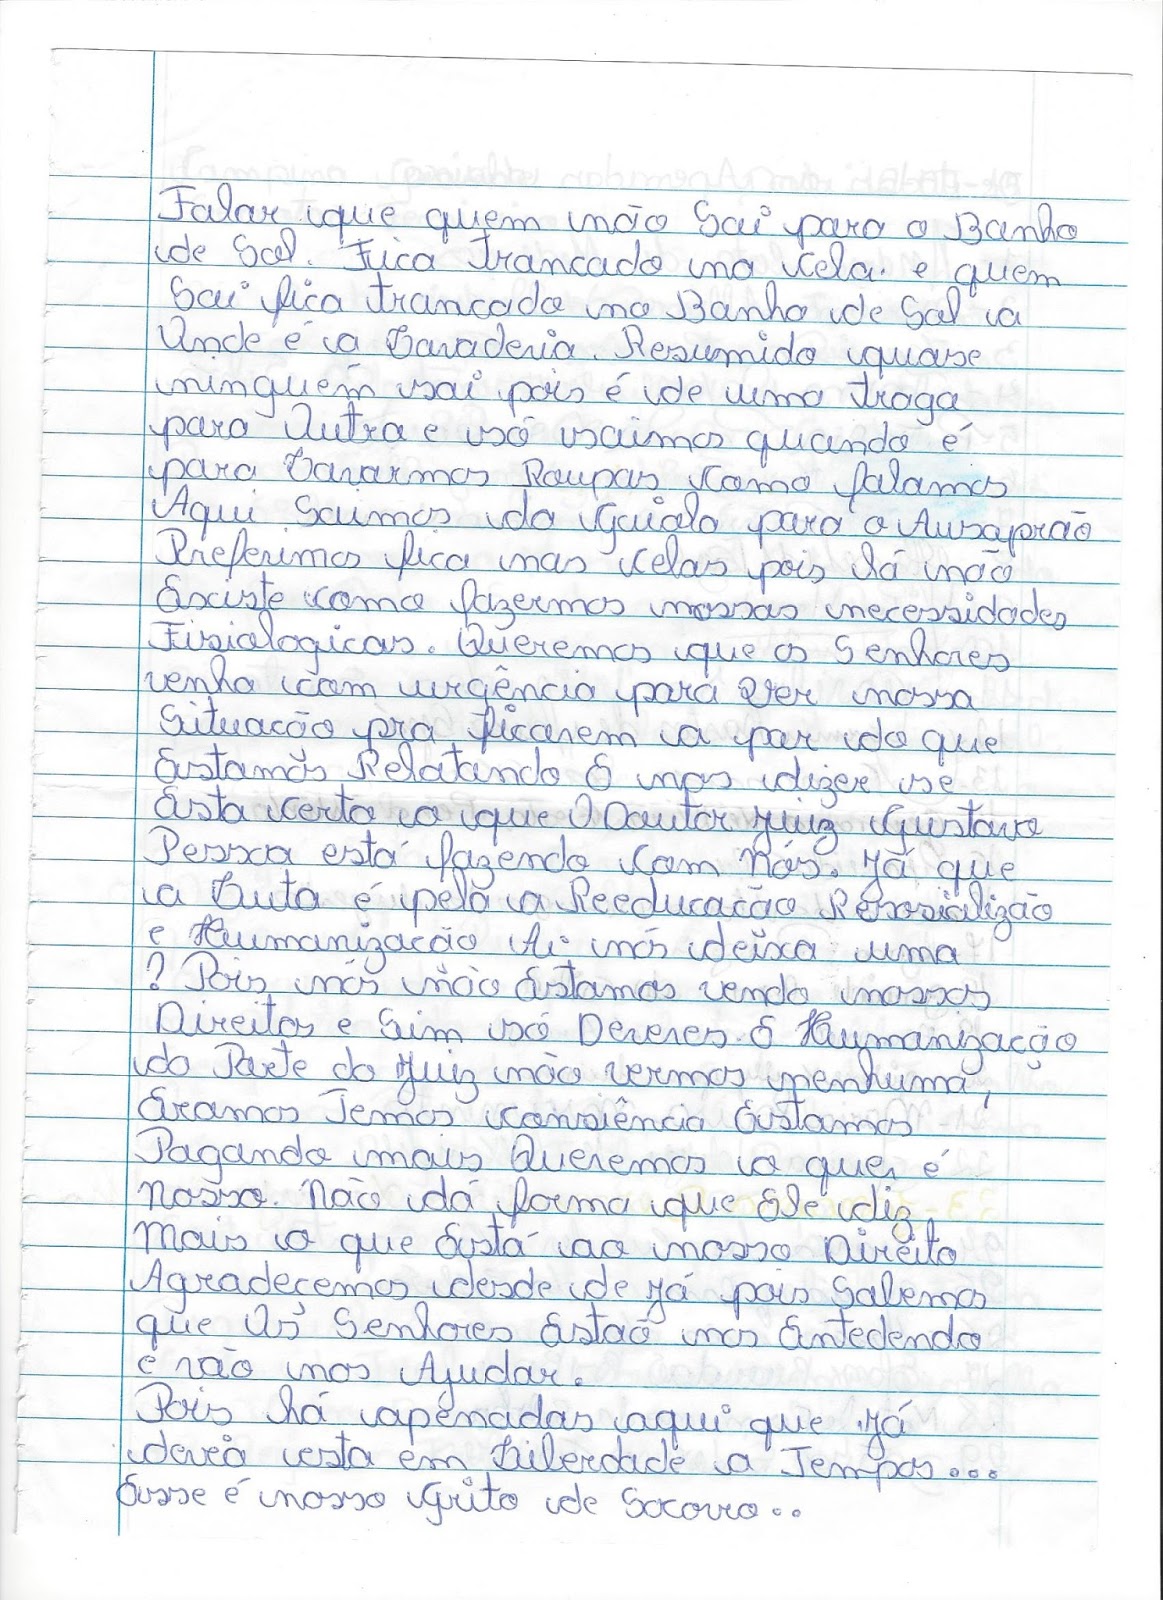 Falar que quem não Sai para o Banho
de Sol. Fica Trancado na Cela. e quem
Sai fica trancado no Banho de Sol a
Onde é a Lavaderia. Resumido quase
ninguém sai pois é de uma traga
para Outra e só saimos quando é
para Lavarmos Roupas como falamos
Aqui Saimos da Gaiola para o Ausaprão
Preferimos fica nas Celas pois lá não
Existe como fazermos nossas necessidades
Fisiologicas. Queremos que os Senhores
venha com urgência para ver nossa
Situacão pra ficarem a par do que
Estamos Relatando E nos dizer se
Esta Certo o que O Doutor Juiz Gustavo
Pessoa está fazendo com Nós. Já que
a Luta é pela a Reeducacão Resosialização
e Humanizacão Ai nós deixa uma
? Pois nós não Estamos vendo nossos
Direitos e Sim só Deveres. E Humanizacção
do Parte do Juiz não vermos nenhuma,
Eramos Temos Consiência Estamos
Pagando mais Queremos o que é
Nosso. Não dá forma que Ele diz
Mais o que Está ao nosso Direito
Agradecemos desde de Já pois Sabemos
que Os Senhores Estaõ nos Entedendo
e vão nos Ajudar.
Pois há apenadas aqui que Já
devia esta em Liberdade a Tempos...
Esse é nosso Grito de Socorro..